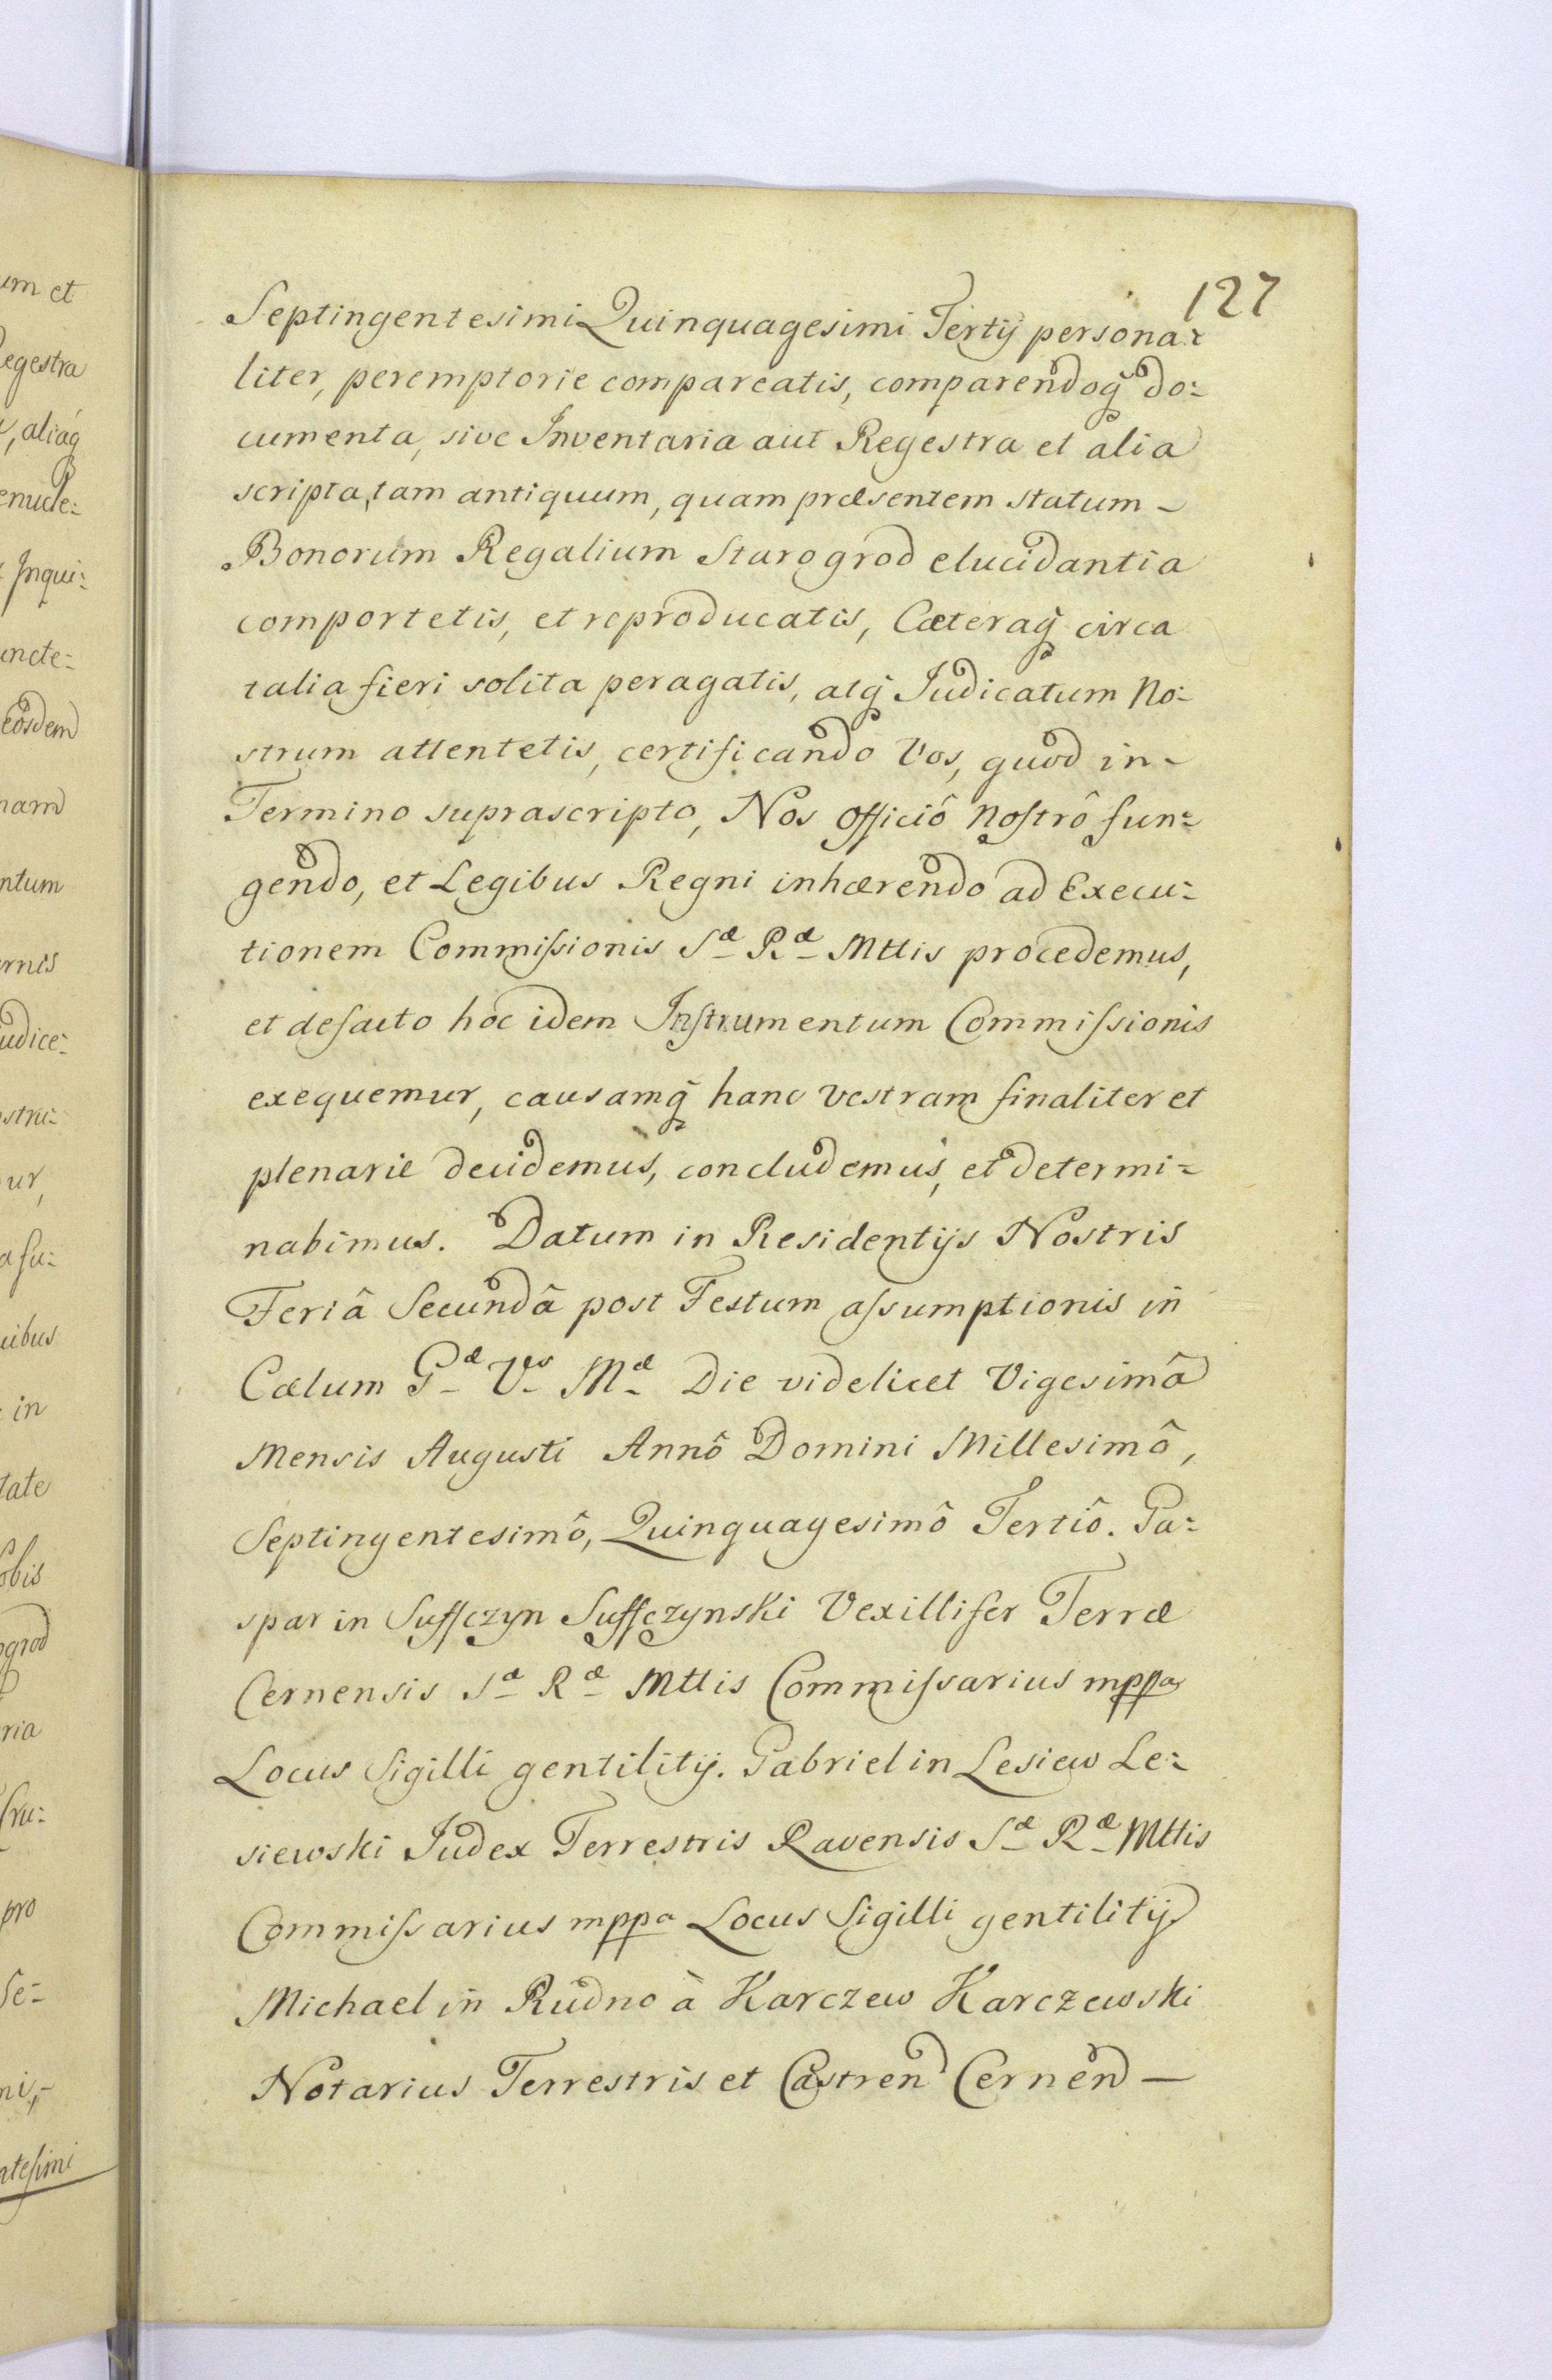 127
Septingentesimi Quinquagesimi Tertij persona:
liter, peremptorie compareatis, comparendoq̃ do:
cumenta, sive Inventaria aut Regestra et alia
scripta, tam antiquum, quam præsentem statum -
Bonorum Regalium Starogrod elucidantia
comportetis, et reproducatis, Cæteraq̃ circa
talia fieri solita peragatis, atq̃ Judicatum No:
strum attentetis, certificando Vos, quod in -
Termino suprascripto, Nos officiô noſtrô fun:
gendo, et Legibus Regni inhærendo ad Execu:
tionem Commiſsionis Sæ Ræ Mttis procedemus,
et defacto hoc idem Inſtrumentum Commiſsionis
exequemur, causamq̃ hanc vestram finaliter et
plenarie decidemus, concludemus, et determi:
nabimus. Datum in Residentijs Nostris
Feriâ Secundâ post Festum aſsumptionis in
Cælum Gæ Vs Mæ Die videlicet Vigesimâ
Mensis Augusti Annô Domini Millesimô,
Septingentesimô, Quinquagesimô Tertiô. Ga:
spar in Suffczyn Suffczynski Vexillifer Terræ
Cernensis Sæ Ræ Mttis Commiſsarius mppa
Locus Sigilli gentilitij. Gabriel in Lesiew Le:
siewski Judex Terrestris Ravensis Sæ Ræ Mttis
Commiſsarius mppa Locus Sigilli gentilitij
Michael in Rudno à Karczew Karczewski
Notarius Terrestris et Castren Cernen —
um et
egestra
, aliaq̃
enucle:
Inqui:
uncte:
eosdem
nam
ntum
ernis
udice:
ostru:
ur,
a fu:
uibus
in
tate
obis
ogrod
ria
fru:
pro
Se:
ntesimi